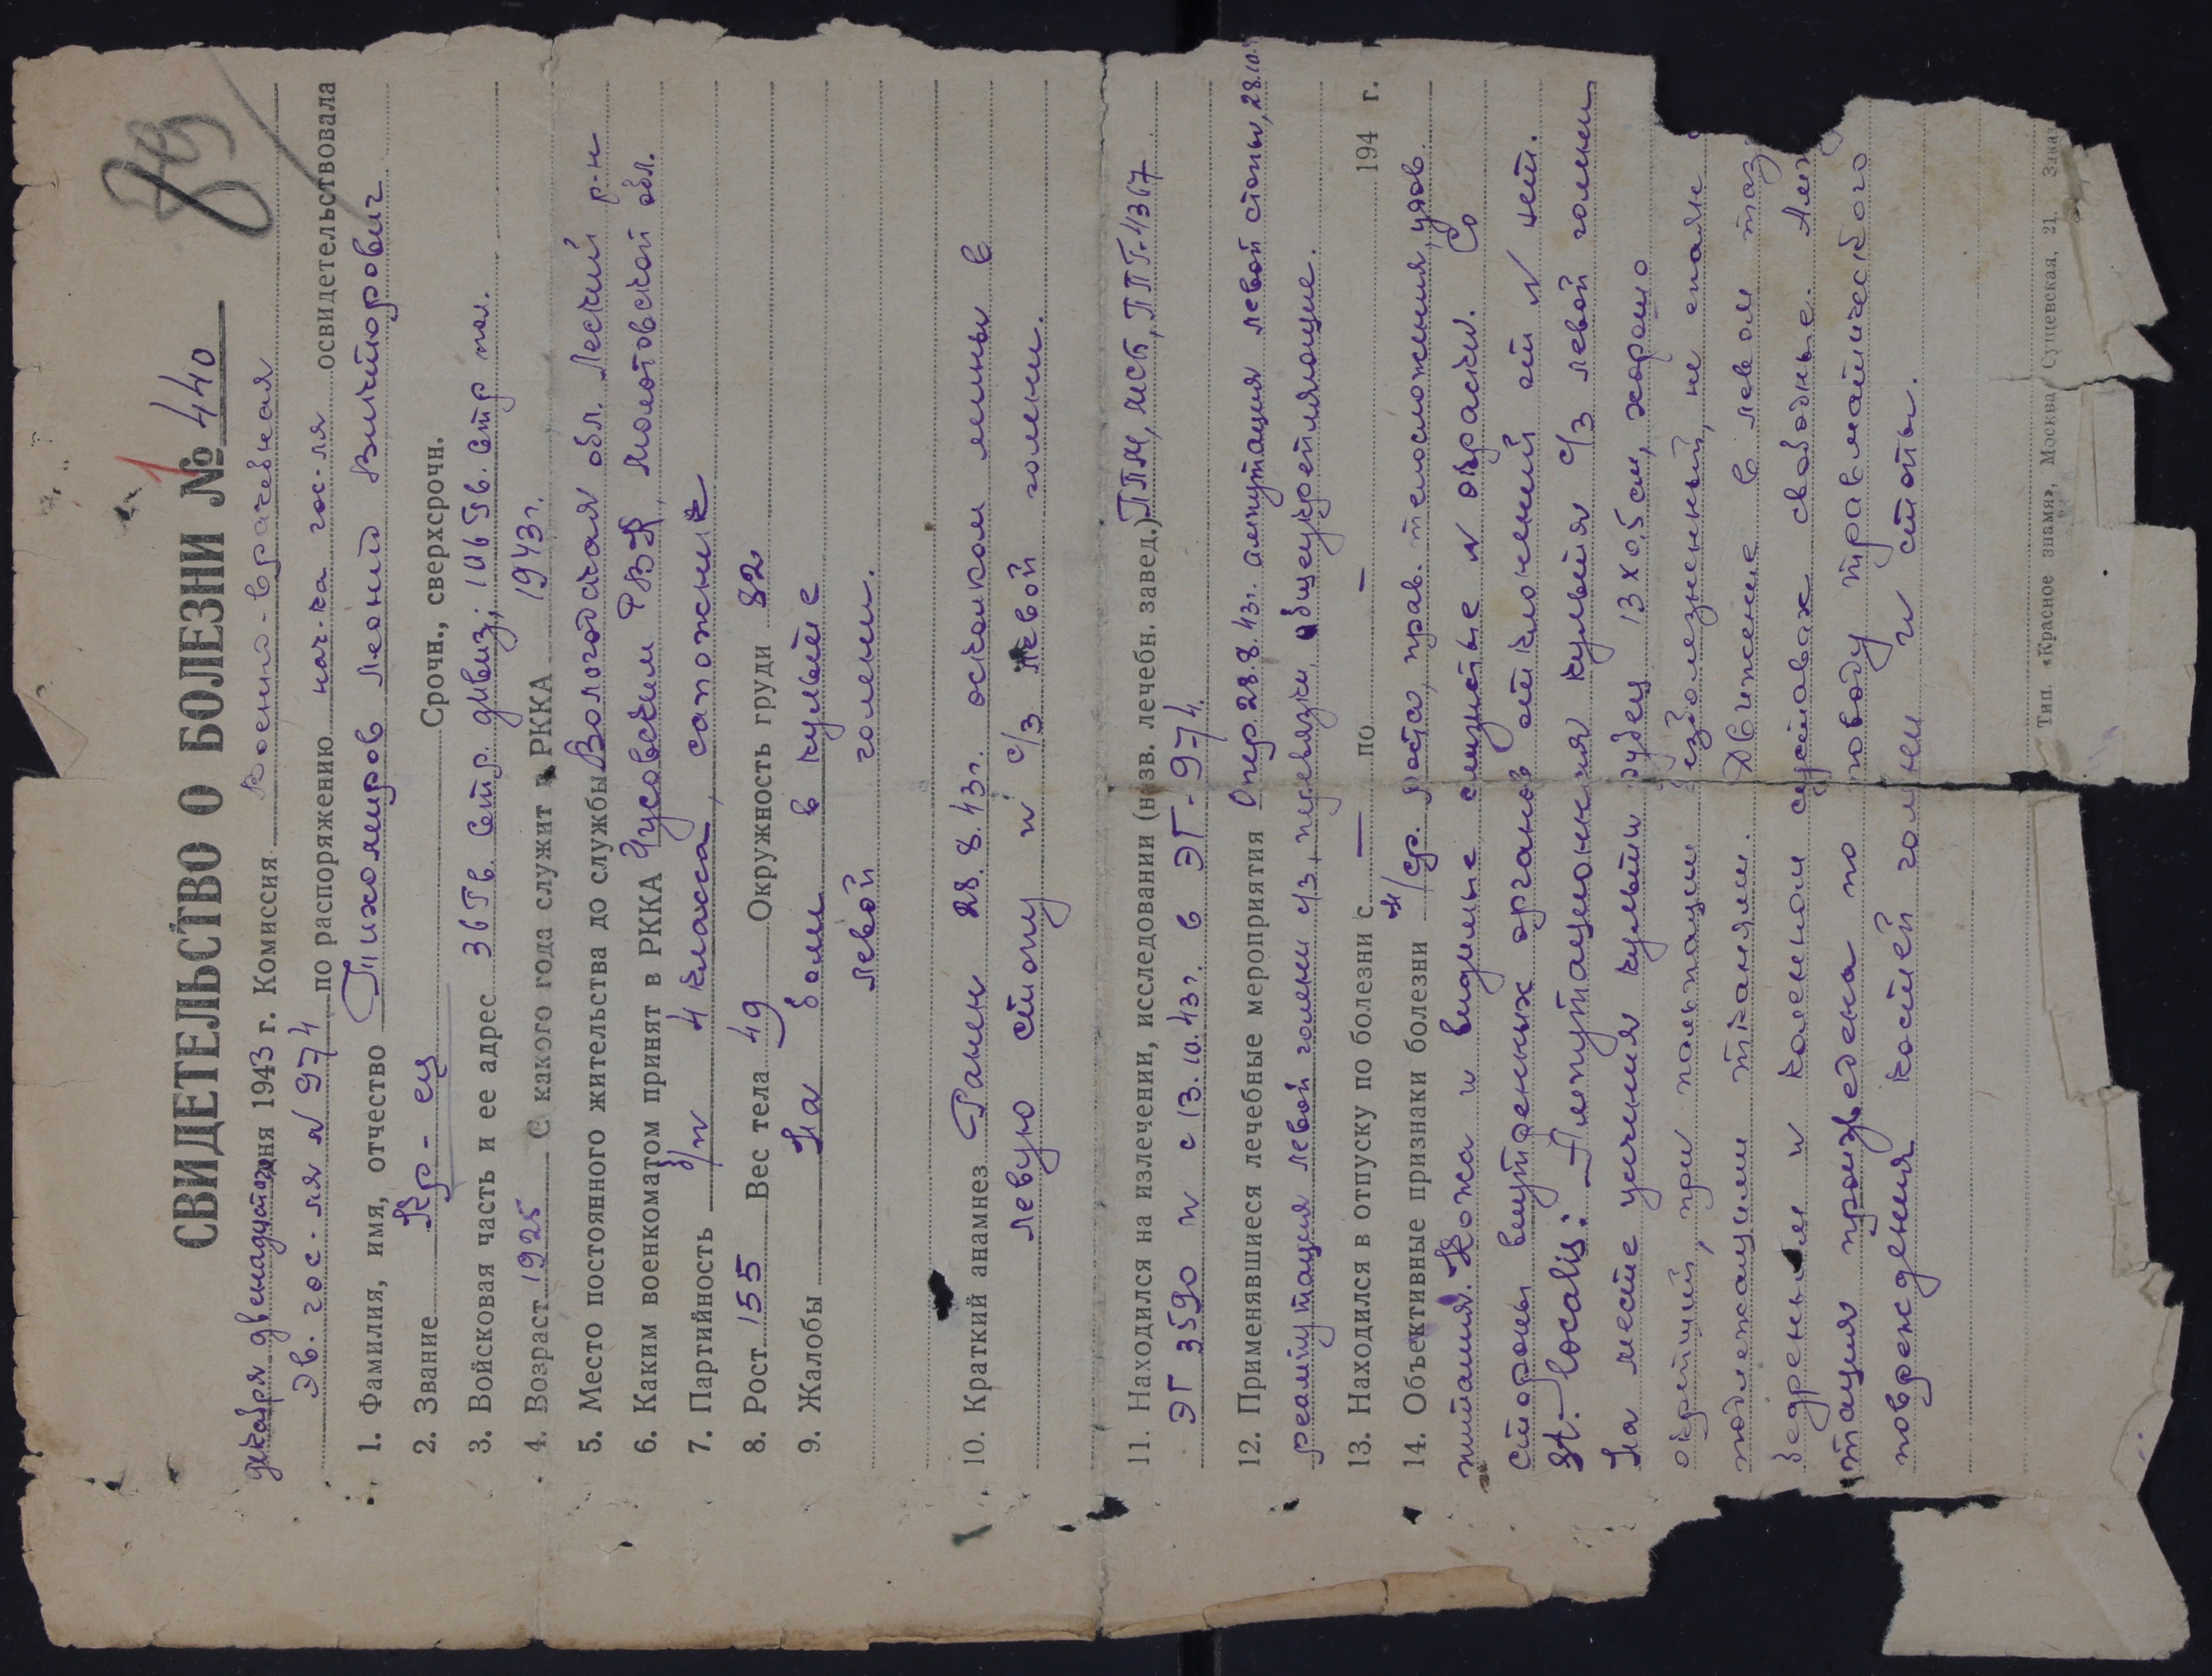 СВИДЕТЕЛЬСТВО О БОЛЕЗНИ № 440
декабря двенадцатого дня 1943 г. Комиссия военно-врачебная
Эв. гос-ля № 974 по распоряжению нач-ка гос-ля освидетельствовала
1. Фамилия, имя, отчество Тихомиров Леонид Викторович
2. Звание Кр-ец Срочн., сверхсрочн.
3. Войсковая часть и ее адрес 36 Гв. стр. дивиз; 106 Гв. стр пол.
4. Возраст 1925 С какого года служит в РККА 1943 г.
5. Место постоянного жительства до службы Вологодская обл. Леский р-н
6. Каким военкоматом принят в РККА Чусовским РВК, Молотовской обл.
7. Партийность б/п 4 класса, сапожник
8. Рост 155 Вес тела 49 Окружность груди 82
9. Жалобы На боли в культе
левой голени.
10. Краткий анамнез Ранен 28.8.43г. осколком мины в
левую стопу и с/з левой голени.
11. Находился на излечении, исследовании (назв. лечебн. завед.) ППМ, МСБ, ППГ-4367
ЭГ 3590 и с 13.10.43г. в ЭГ-974.
12. Применявшиеся лечебные мероприятия Опер. 28.8.43г. ампутация левой стопы, 28.10.
реампутация левой голени с/з, перевязки, общеукрепляющие.
13. Находился в отпуску по болезни с — по — 194 г.
14. Объективные признаки болезни н/ср. роста, прав. телосложения, удов.
питания. Кожа и видимые слизистые N окраски. Со
стороны внутренних органов отклонений от N нет.
St. localis: Ампутационная культя с/з левой голени
На месте усечения культи рубец 13 х 0,5 см, хорошо
окрепший, при пальпации безболезненный, не спаян с
подлежащими тканями. Движение в левом таз
бедренном и коленном суставах свободные. Амп
тация произведена по поводу травматического
повреждения костей голени и стопы.
Тип. «Красное знамя», Москва, Сущевская, 21. Зака